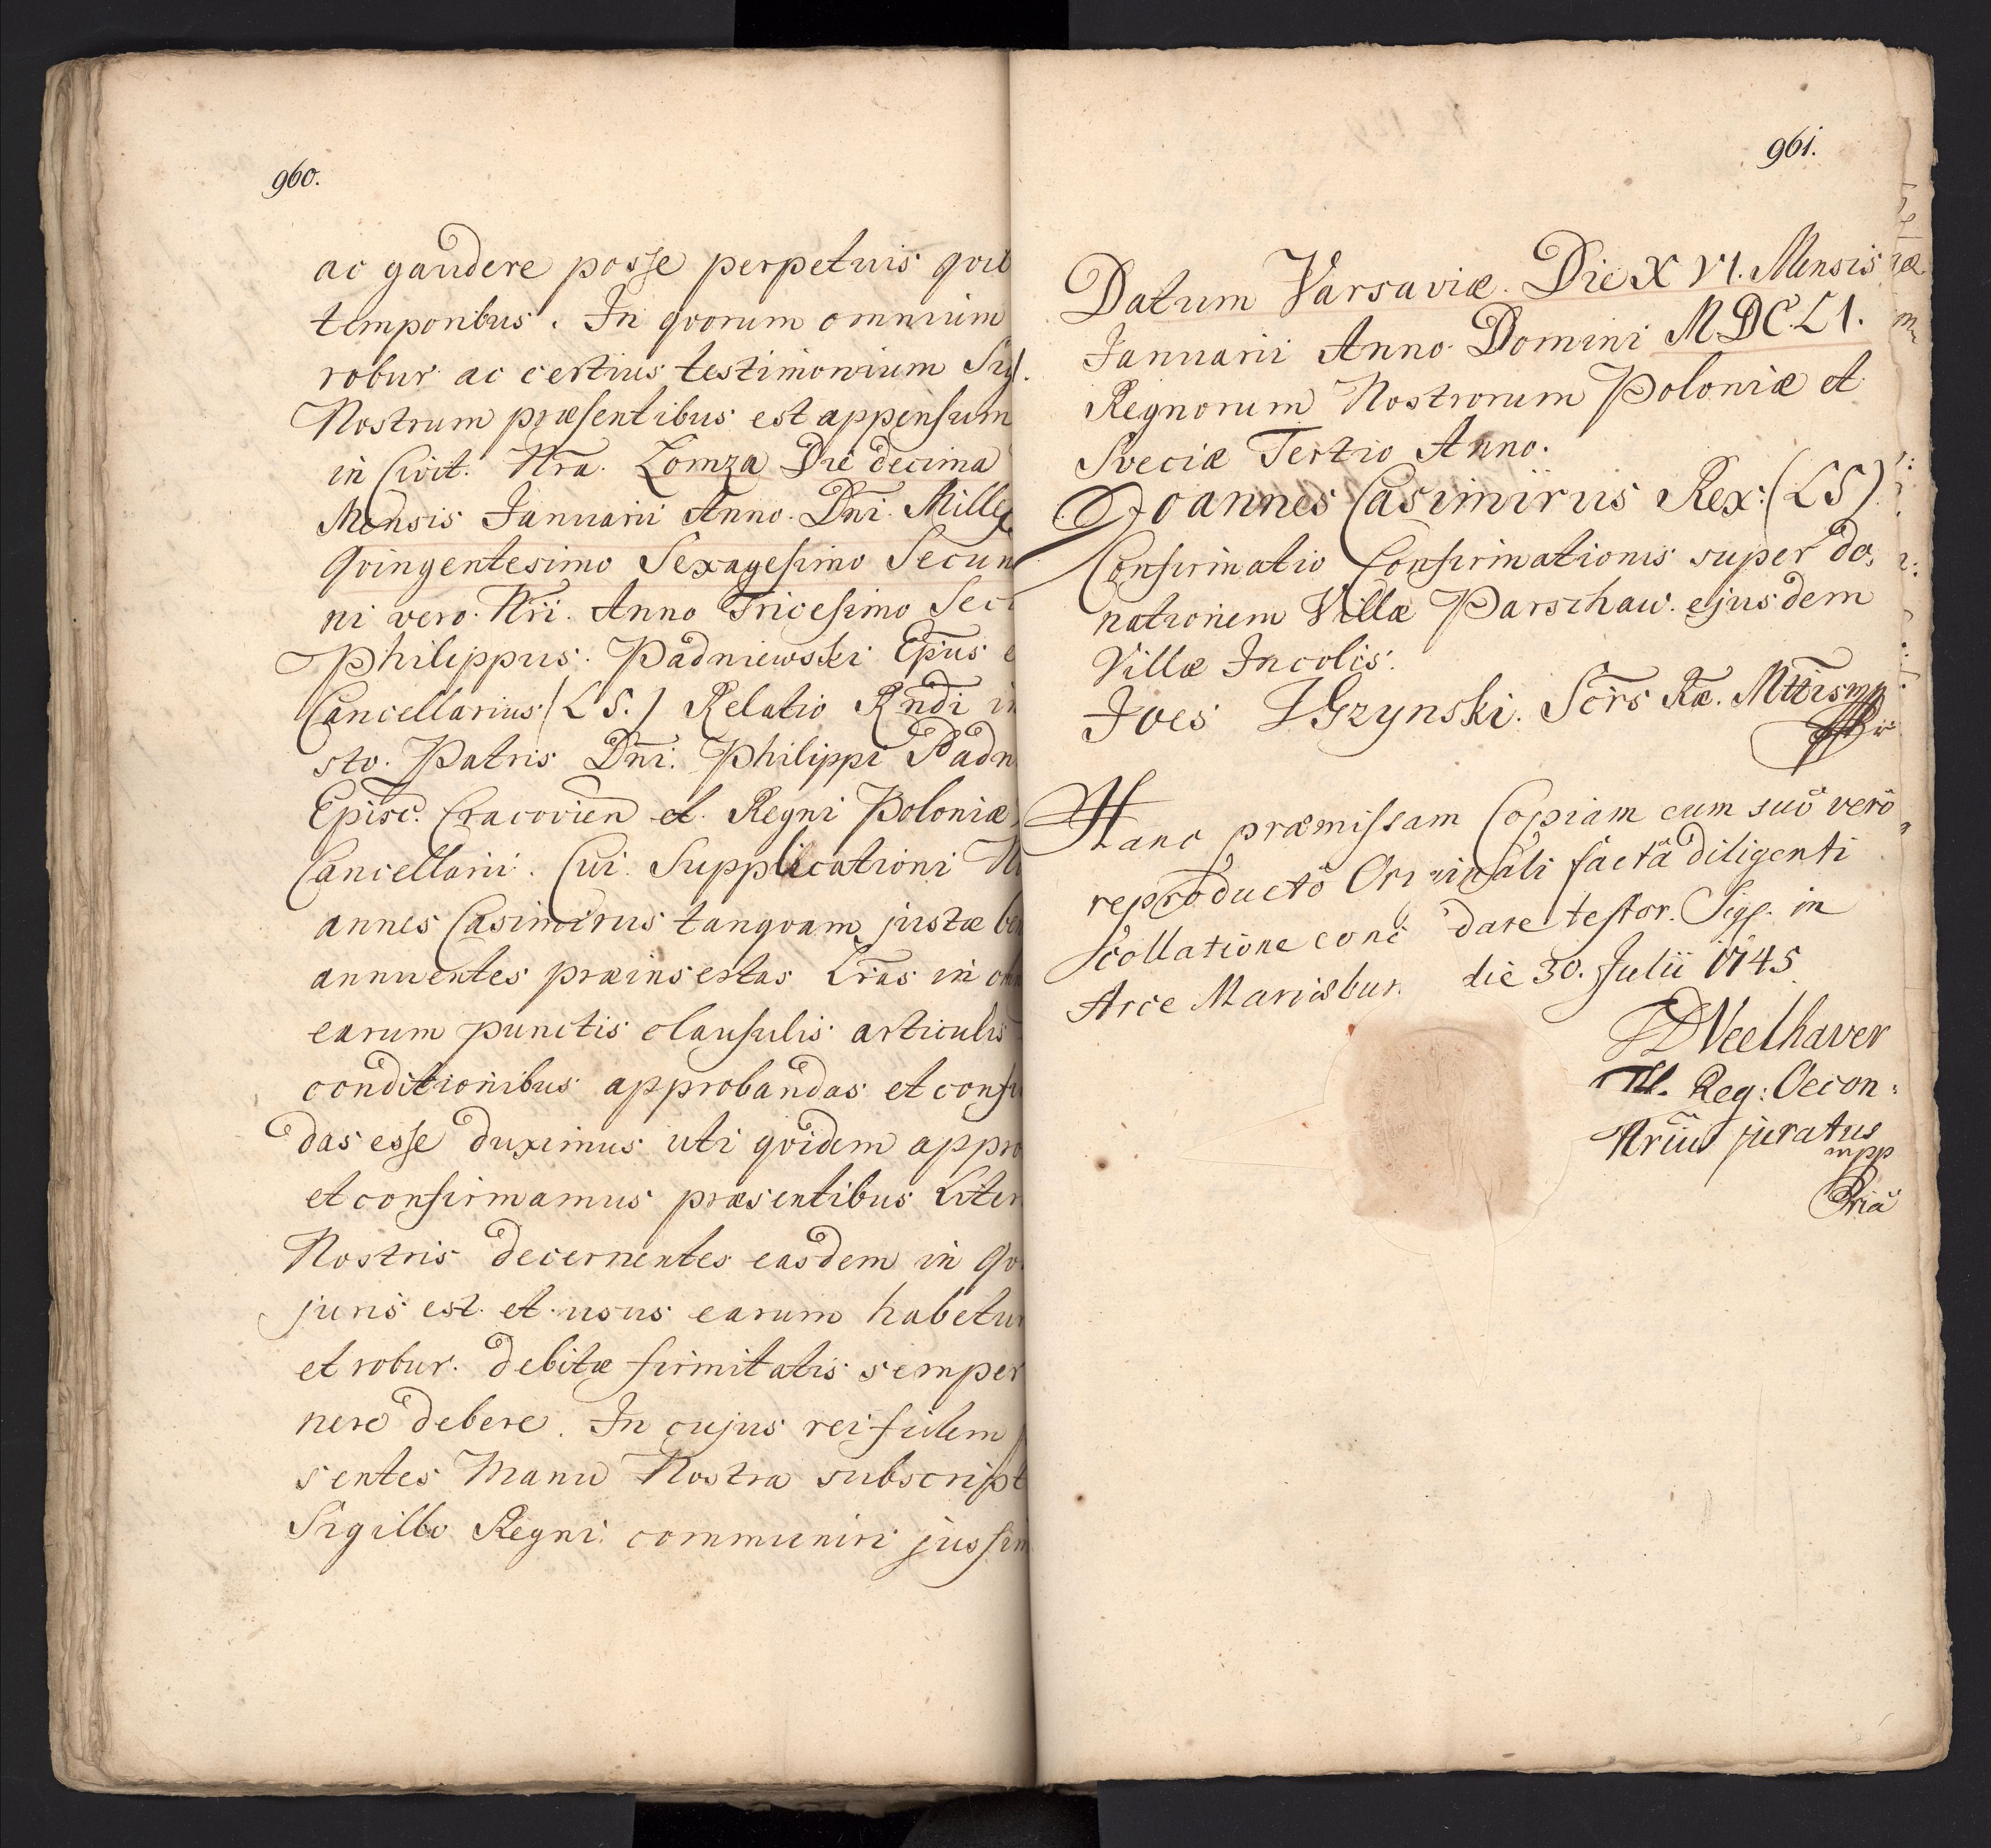 960.
ac gaudere posse perpetuis
temporibus. In qvorum omnium
robur ac certius testimonium
Nostrum præsentibus est appensum
in Civit. Nra. Lomza Die decima
Mensis Januarii Anno. Dni. Mille
Qvingentesimo Sexagesimo Secun
ni vero. Nri. Anno Tricesimo Sec
Philippus. Padniewski Epus
Cancellarius (LS.) Relatio Rndi in
sto. Patris Dni. Philippi Padn
Episc. Cracovien et. Regni Poloniæ
Cancellarii. Cui. Supplicationi
annes Casimirus tanqvam justæ
annuentes præinsertas Lras in
earum punctis clausulis articulis
conditionibus approbandas et confir
das esse duximus uti qvidem appro
et confirmamus præsentibus Liter
Nostris decernentes easdem in
juris est. et usus earum habetur
et robur. debitæ firmitatis semper
nere debere. In cujus rei fidem
sentes Manu Nostra subscript
Sigillo Regni communiri jussim
961.
Datum Varsaviæ. Die XVI. Mensis
Januarii Anno. Domini MDC.LI.
Regnorum Nostrorum Poloniæ et
Sveciæ Tertio Anno.
Joannes Casimirus Rex: (LS)
Confirmatio Confirmationis super do,
nationem Villæ Parschaw. ejusdem
Villæ Incolis.
Joes Srs Ræ. Mttis mp
Hanc præmissam Copiam cum suo vero
reproducto Originali facta diligenti
collatione dare testor. Sigs. in
Arce Mariæbur. die 30. Julii 1745
Neelhaver
M. Reg: Oecon:
Nrius juratus
mpp